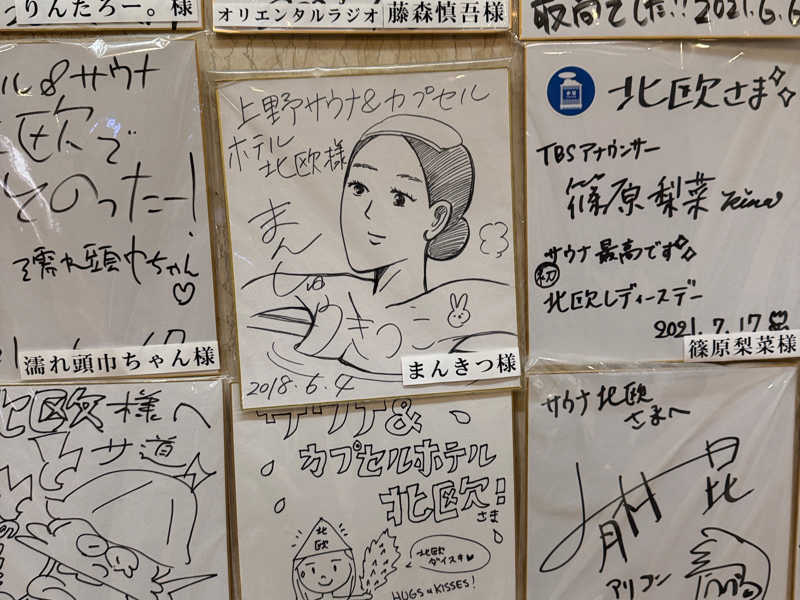 りんたろー。様
オリエンタルラジオ 藤森慎吾様
最高でした!! 2021.6.6
ル&サウナ
北欧で
とのったー!
濡れ頭巾ちゃん
濡れ頭巾ちゃん様
上野サウナ&カプセル
ホテル
北欧様
まんしゅう
きつこ
2018.6.4
まんきつ様
北欧さま
TBSアナウンサー
篠原梨菜 Rina
サウナ最高です
初
北欧レディースデー
2021.7.17
篠原梨菜様
北欧様へ
サ道
サウナ&
カプセルホテル
北欧!
さま
北欧
北欧
ダイスキ
HUGS & KISSES!
サウナ北欧
さまへ